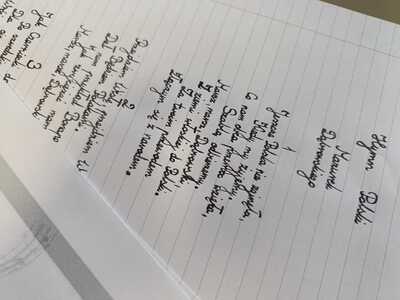 Hymn Polski
Mazurek
Dąbrowskiego
1
Jeszcze Polska nie zginęła,
Kiedy my żyjemy.
Co nam obca przemoc wzięła,
Szablą odbierzemy.
Marsz, marsz, Dąbrowski,
Z ziemi włoskiej do Polski.
Za twoim przewodem
Złączym się z narodem.
2
Przejdziem Wisłę, przejdziem W
Będziem Polakami.
Dał nam przykład Bonapa
Jak zwyciężać mamy.
Marsz, marsz, Dąbrowski
3
Jak Czarniecki do